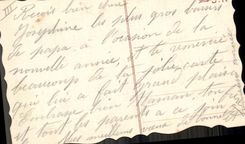 Reçois bien chère
Joséphine les plus gros baisers
de papa à l'occasion de la
nouvelle année, et te remercie
beaucoup de la jolie carte
qui lui a fait grand plaisir
Embrasse bien Maman ton
et tous tes parents a ce
meilleurs vœux de bonne